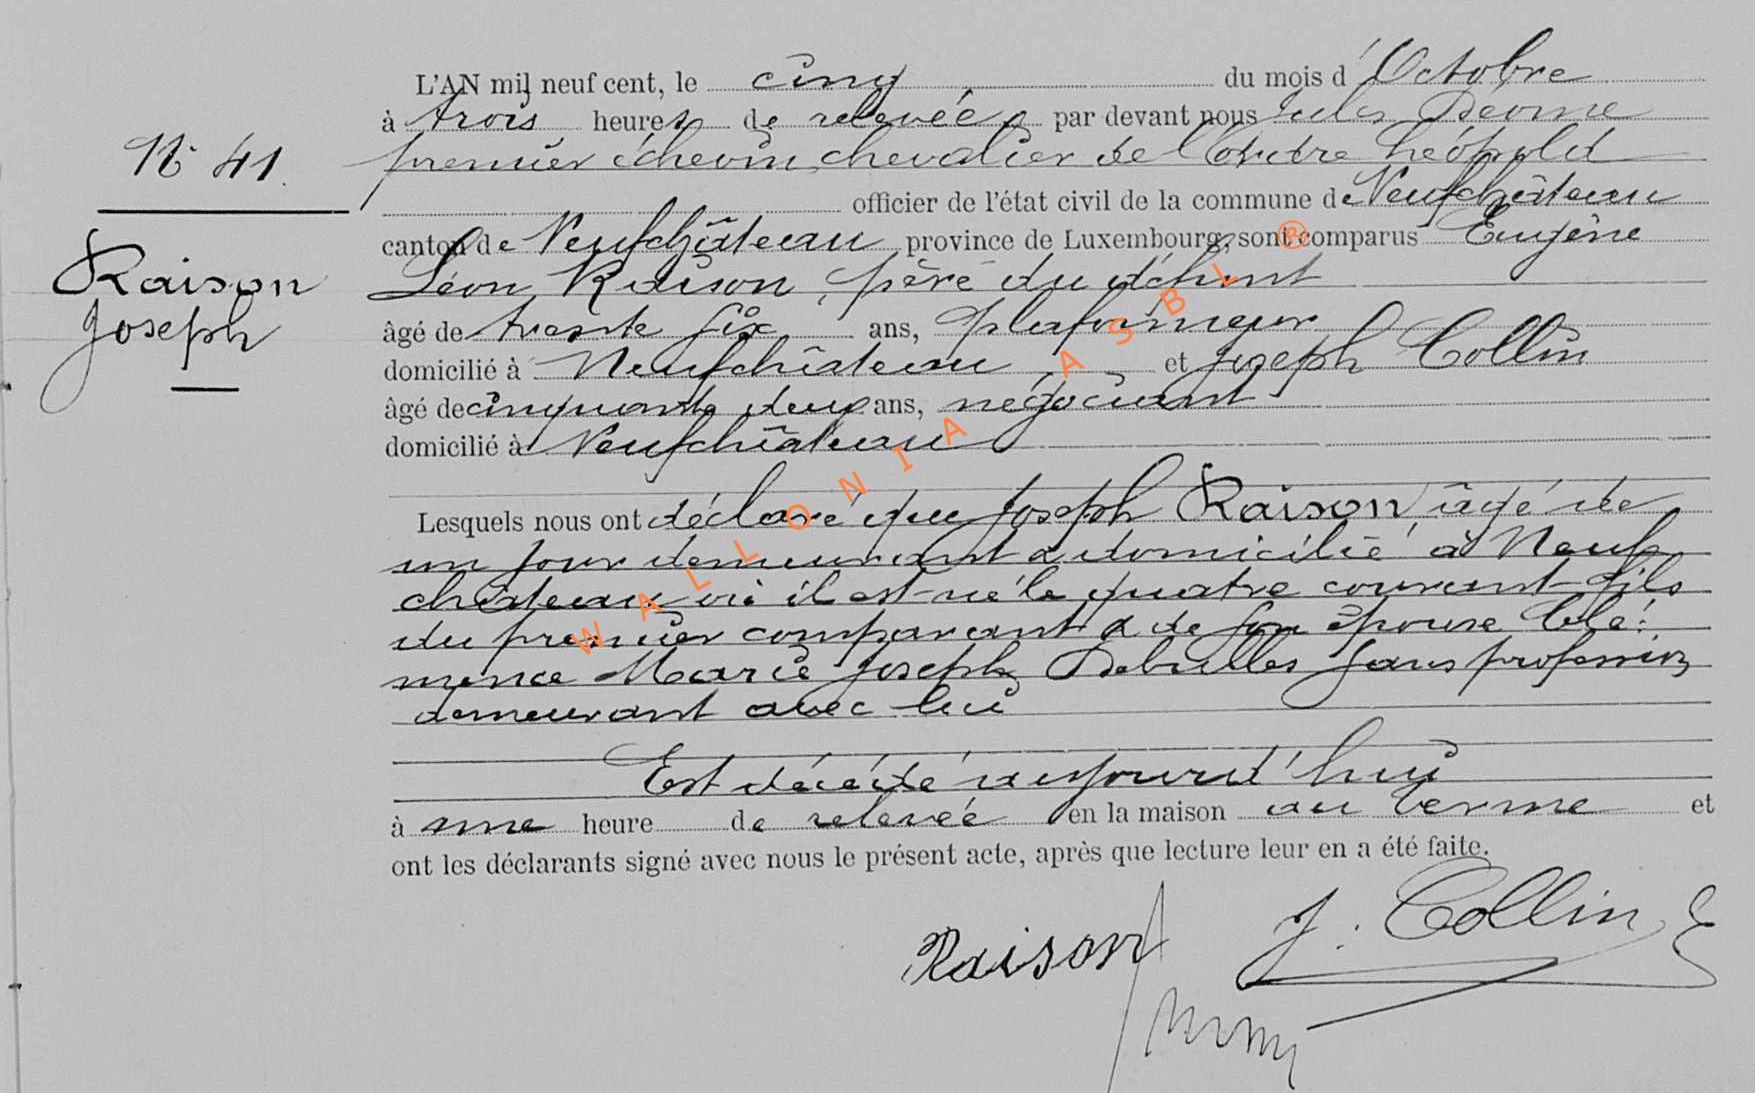 L'AN mil neuf cent, le cinq du mois d'Octobre
à trois heures de relevée, par devant nous Jules
N° 41. premier échevin, chevalier de l'ordre Léopold
officier de l'état civil de la commune de Neufchâteau
canton de Neufchâteau province de Luxembourg, sont comparus Eugène
Raison Léon Raison, père du défunt
Joseph âgé de trente six ans, plafonneur
domicilié à Neufchâteau, et Joseph Collin
âgé de cinquante deux ans, négociant
domicilié à Neufchâteau
Lesquels nous ont déclaré que Joseph Raison, âgé de
un jour demeurant & domicilié à Neuf
château où il est né le quatre courant fils
du premier comparant & de son épouse Clé-
mence Marie Joseph sans profession
demeurant avec lui
Est décédé aujourd'hui
à une heure de relevée en la maison au Terme et
ont les déclarants signé avec nous le présent acte, après que lecture leur en a été faite.
Raison J. Collin
WALLONIA ASBL ®